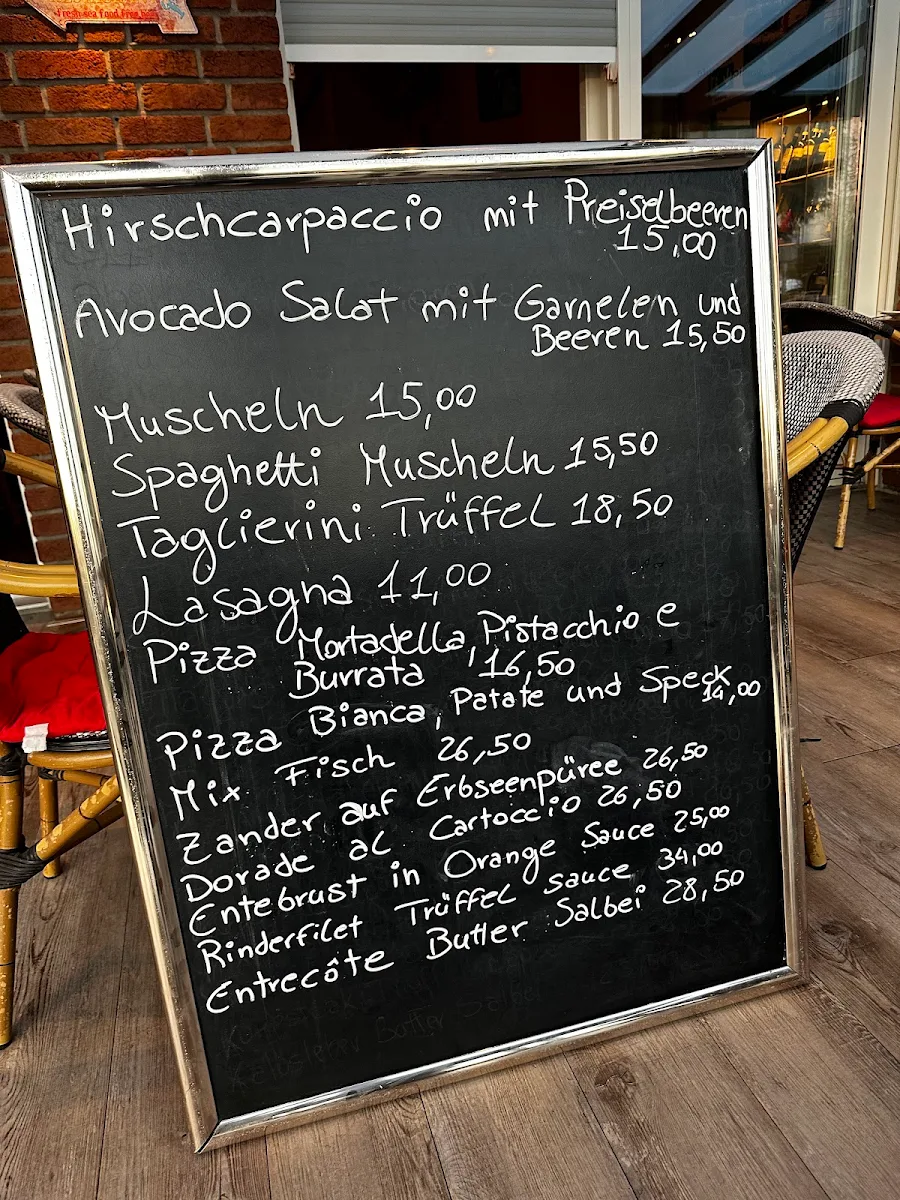 Fresh sea Food Free
Hirschcarpaccio mit Preiselbeeren
15,00
Avocado Salat mit Garnelen und
Beeren 15,50
Muscheln 15,00
Spaghetti Muscheln 15,50
Taglierini Trüffel 18,50
Lasagna 11,00
Pizza Mortadella, Pistacchio e
Burrata 16,50
Pizza Bianca, Patate und Speck
14,00
Mix Fisch 26,50
Zander auf Erbseenpüree 26,50
Dorade al Cartoccio 26,50
Entebrust in Orange Sauce 25,00
Rinderfilet Trüffel sauce 34,00
Entrecôte Butter Salbei 28,50
Butter Salbei